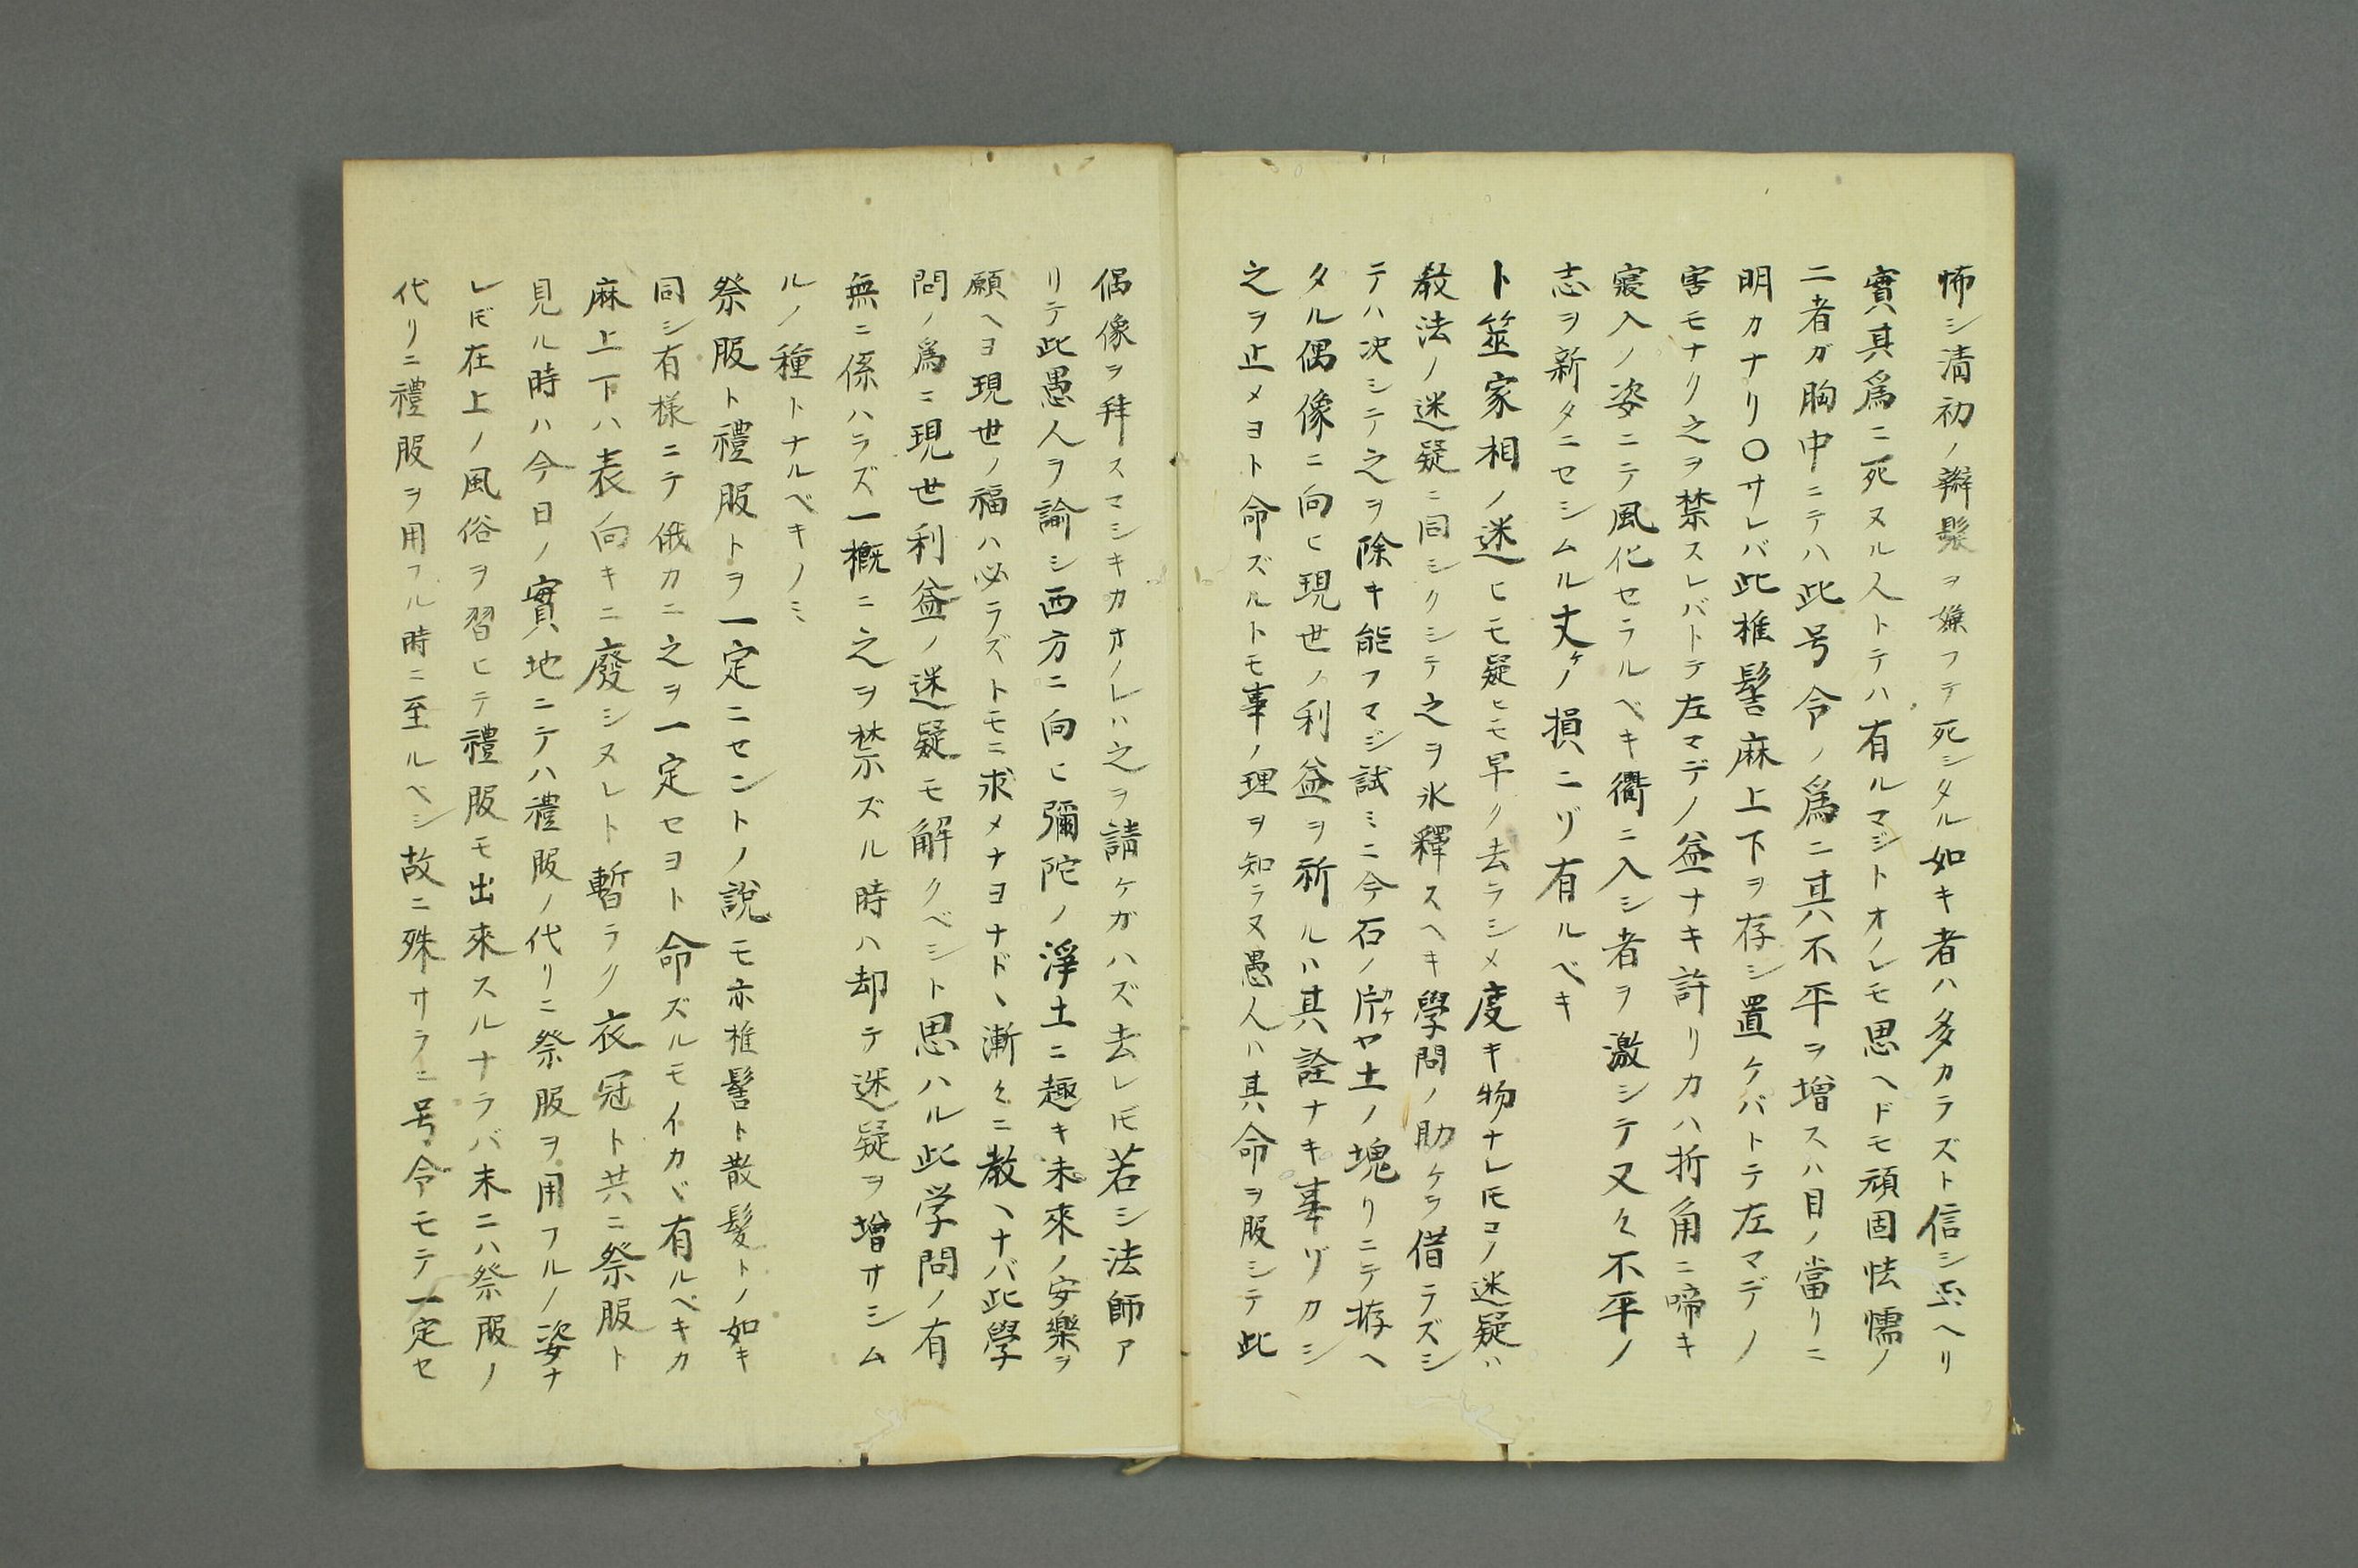 怖シ清初ノ辮髪ヲ嫌フテ死シタル如キ者ハ多カラズト信シ玉ヘリ
實其爲ニ死ヌル人トテハ有ルマジトオノレモ思ヘドモ頑固怯懦ノ
二者ガ胸中ニテハ此号令ノ爲ニ其不平ヲ増スハ目ノ當リニ
明カナリ〇サレバ此椎髻麻上下ヲ存シ置ケバトテ左マデノ
害モナク之ヲ禁スレバトテ左マデノ益ナキ許リカハ折角ニ啼キ
寝入ノ姿ニテ風化セラルベキ衢ニ入シ者ヲ激シテ又々不平ノ
志ヲ新タニセシムル丈ケノ損ニゾ有ルベキ
卜筮家相ノ迷ヒモ疑ヒモ早ク去ラシメ度キ物ナレ𪜈コノ迷疑ハ
教法ノ迷疑ニ同シクシテ之ヲ氷釋スヘキ學問ノ助ケヲ借ラズシ
テハ决シテ之ヲ除キ能フマジ試ミニ今石ノ片カケヤ土ノ塊リニテ拵ヘ
タル偶像ニ向ヒ現世ノ利益ヲ祈ルハ其詮ナキ事ゾカシ
之ヲ止メヨト命ズルトモ事ノ理ヲ知ラヌ愚人ハ其命ヲ服シテ此
偶像ヲ拜スマシキカオノレハ之ヲ請ケガハズ去レ𪜈若シ法師ア
リテ此愚人ヲ諭シ西方ニ向ヒ彌陀ノ淨土ニ趣キ未來ノ安樂ヲ
願ヘヨ現世ノ福ハ必ラズトモニ求メナヨナド、漸々ニ教ヘナバ此學
問ノ爲ニ現世利益ノ迷疑モ解クベシト思ハル此学問ノ有
無ニ係ハラズ一概ニ之ヲ禁ズル時ハ却テ迷疑ヲ増サシム
ルノ種トナルベキノミ
祭服ト禮服トヲ一定ニセントノ說モ亦椎髻ト散髪トノ如キ
同シ有様ニテ俄カニ之ヲ一定セヨト命ズルモイカヾ有ルベキカ
麻上下ハ表向キニ廢シヌレト暫ラク衣冠ト共ニ祭服ト
見ル時ハ今日ノ實地ニテハ禮服ノ代リニ祭服ヲ用フルノ姿ナ
レ𪜈在上ノ風俗ヲ習ヒテ禮服モ出來スルナラバ末ニハ祭服ノ
代リニ禮服ヲ用フル時ニ至ルヘシ故ニ殊サラニ号令モテ一定セ